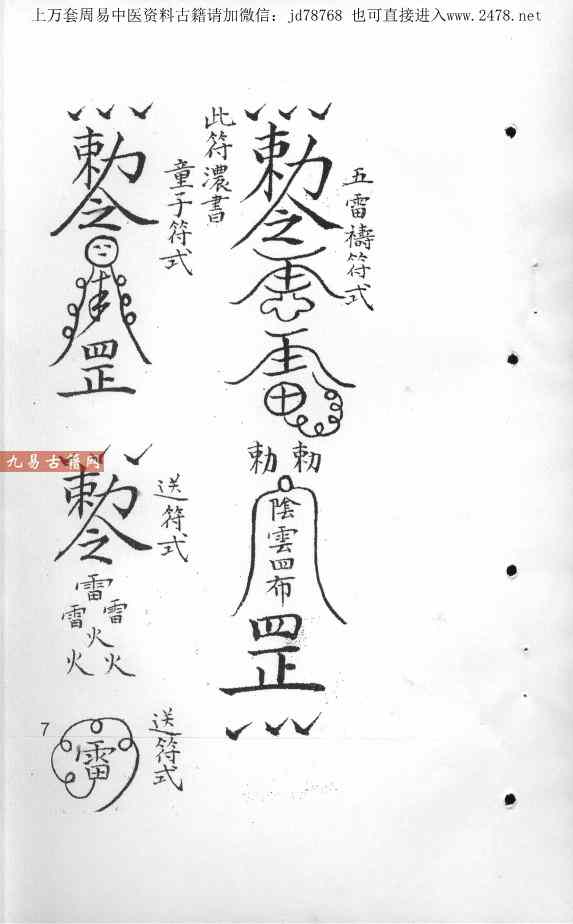 上万套周易中医资料古籍请加微信：jd78768 也可直接进入www.2478.net
五雷禱符式
敕令
雷
敕 敕
陰雲四布
罡
此符濃書
童子符式
敕令
罡
九易古籍网
送符式
敕令
雷
雷 雷
火
火 火
送符式
雷
7